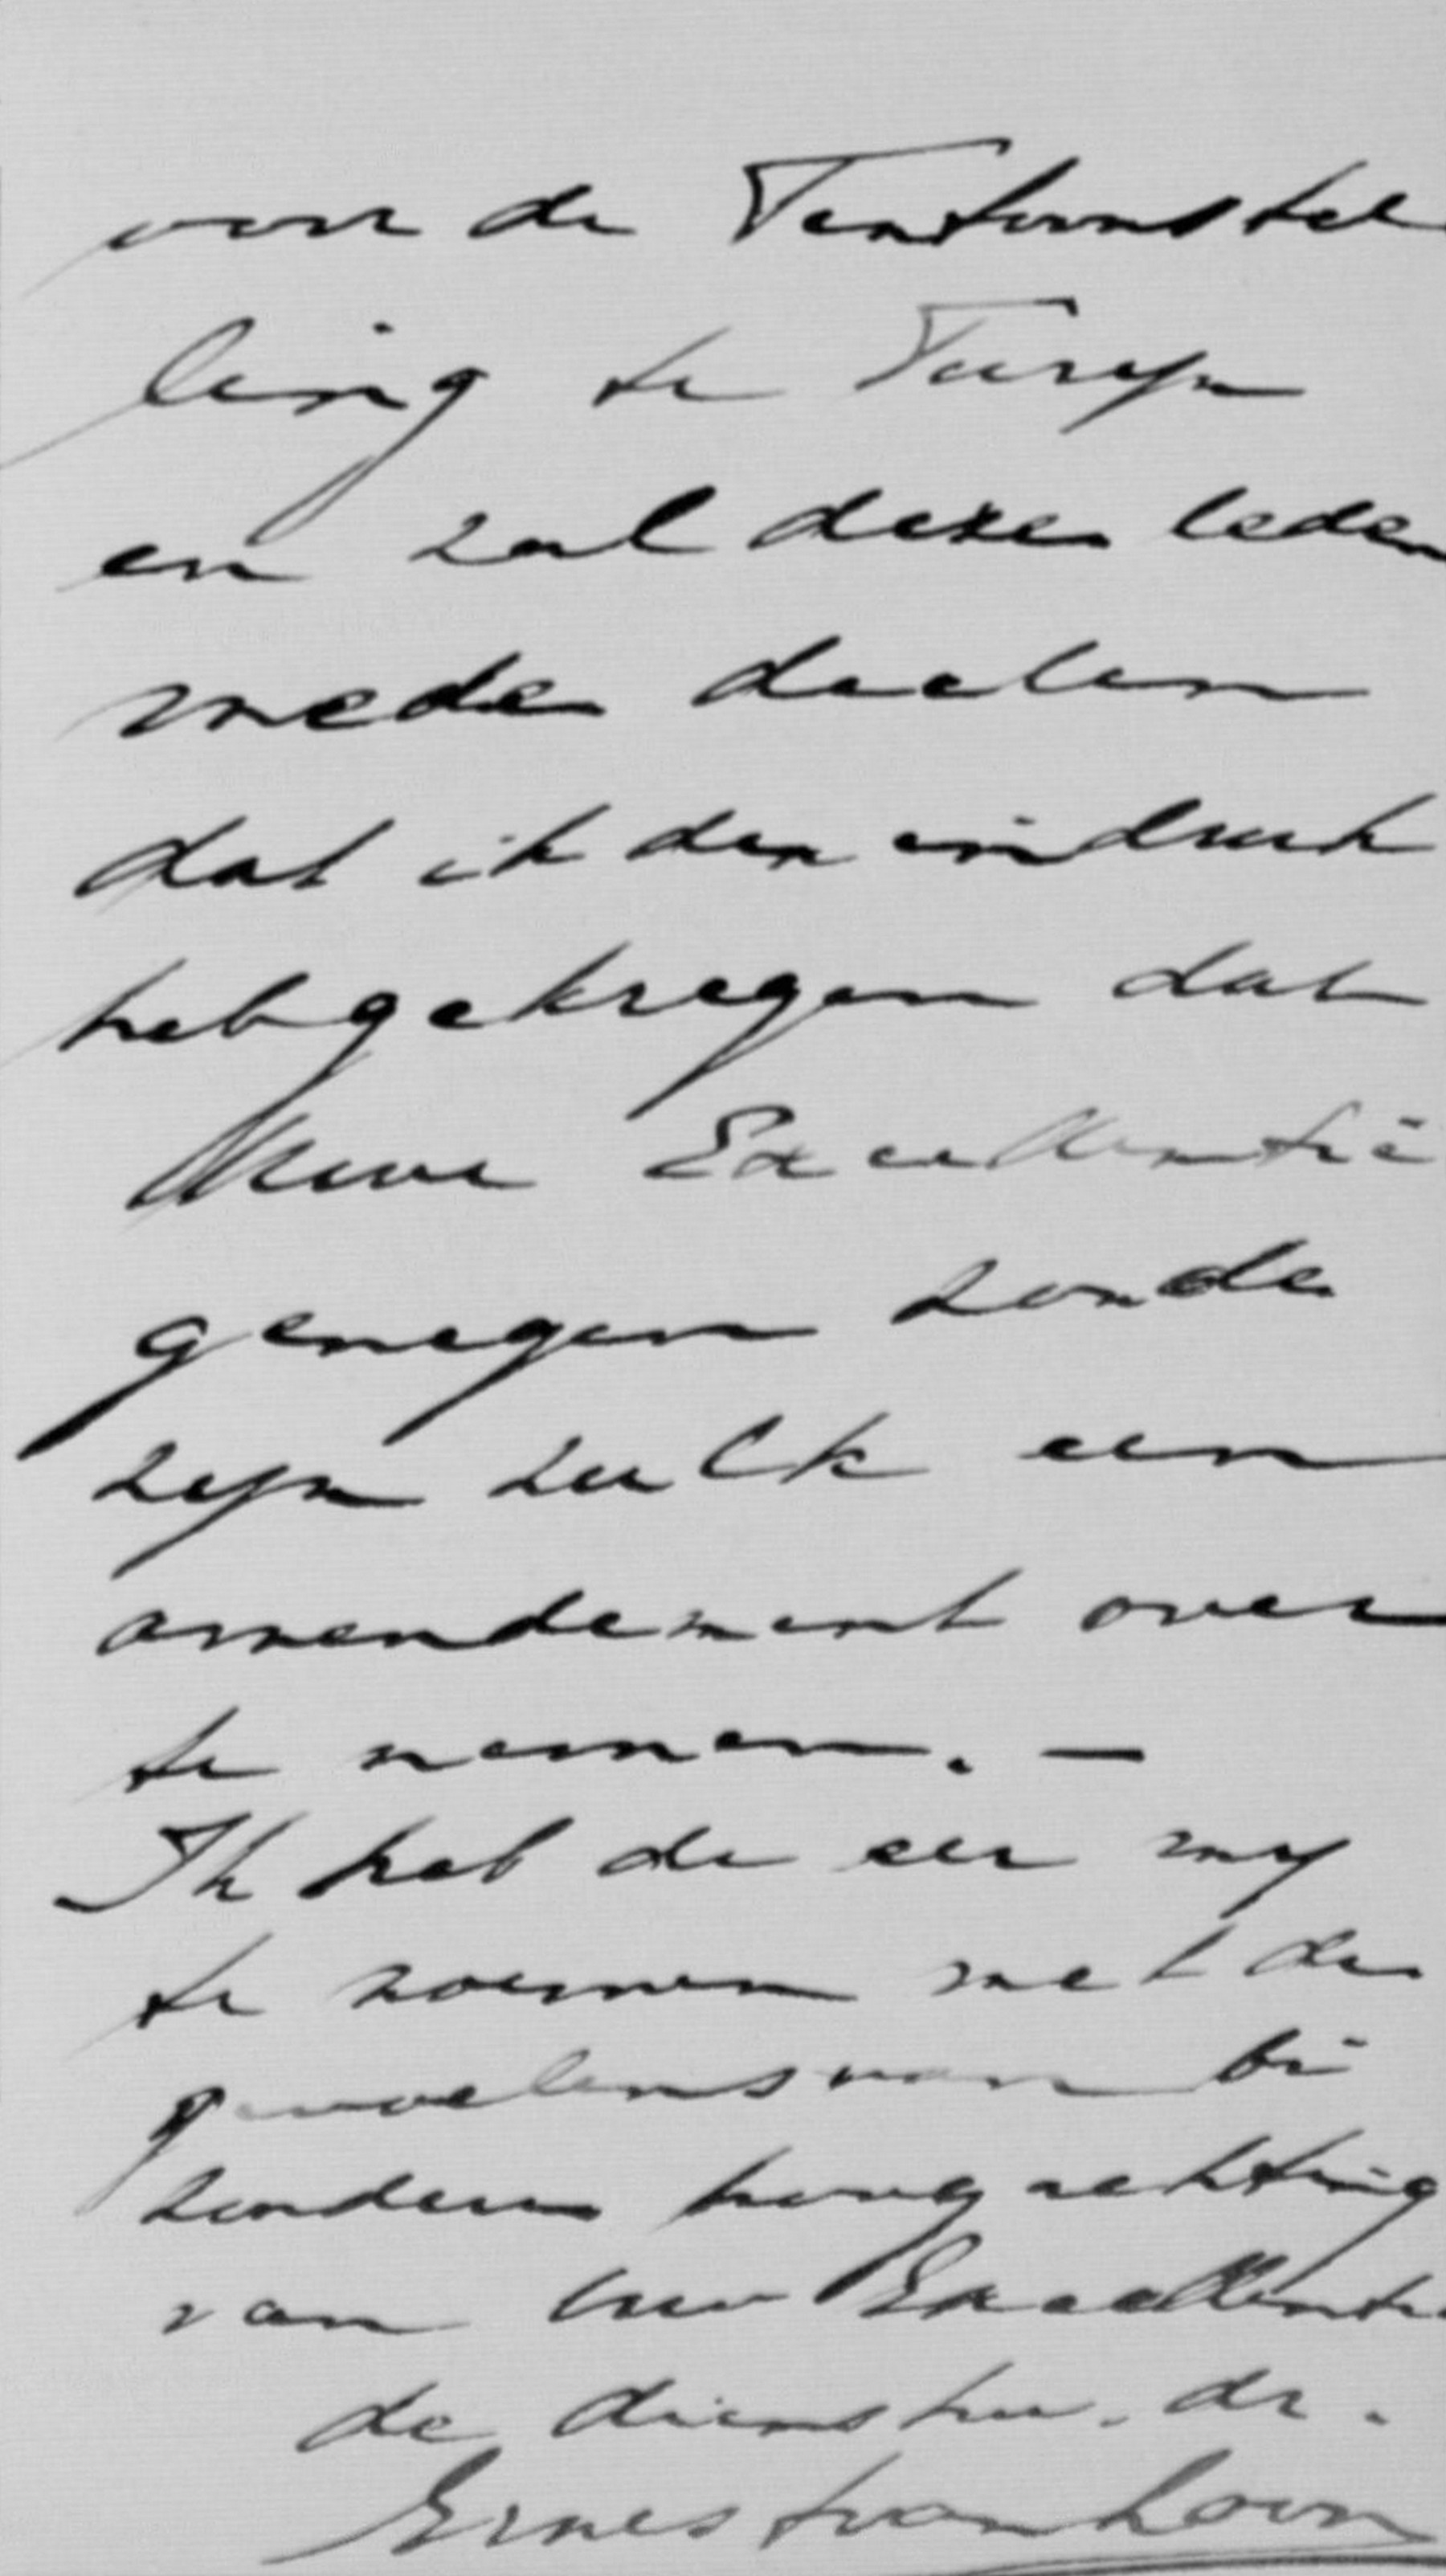 voor de Tentoonstel
ling te Turyn
en zal deze leden
mede deelen
dat ik den indruk
heb gekregen dat
Uwe Excellentie
genegen zoude
zyn zulk een
amendement over
te nemen. —
Ik heb de eer my
te noemen met de
gevoelens van bi
zondere hoogachting
van Uw Excellentie
de dienstw. dr.
Ernest van Loon